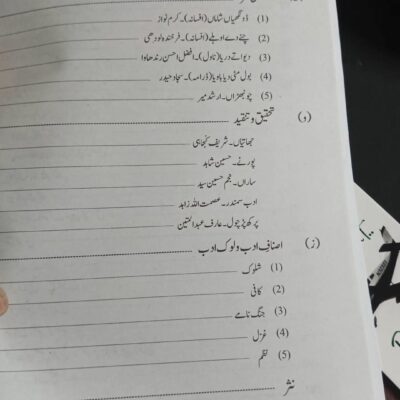 (1) ڈونگھیاں شاماں (افسانہ)۔ کرم نواز
(2) چنے دے اوہلے (افسانہ)۔ فرخندہ لودھی
(3) دیوا تے دریا (ناول)۔ افضل احسن رندھاوا
(4) بول مٹی دیا باویا (ڈرامہ)۔ سجاد حیدر
(5) چونبھڑاں۔ ارشد میر
(و) تحقیق و تنقید
جھاتیاں۔ شریف کنجاہی
پورنے۔ حسین شاہد
ساراں۔ نجم حسین سید
ادب سمندر۔ عصمت اللہ زاہد
پرکھ پڑچول۔ عارف عبدالمتین
(ز) اصناف ادب و لوک ادب
(1) شلوک
(2) کافی
(3) جنگ نامے
(4) غزل
(5) نظم
نثر